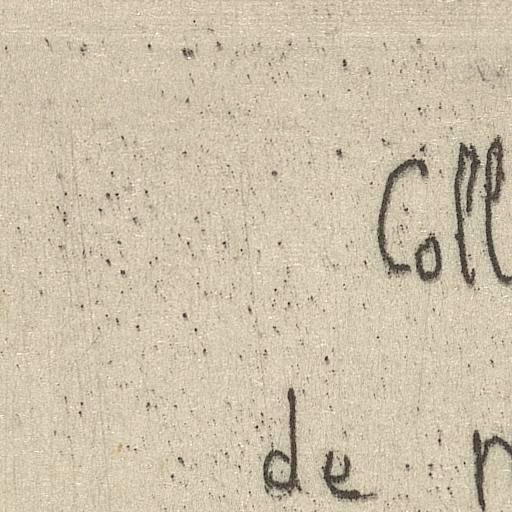 Coll
de